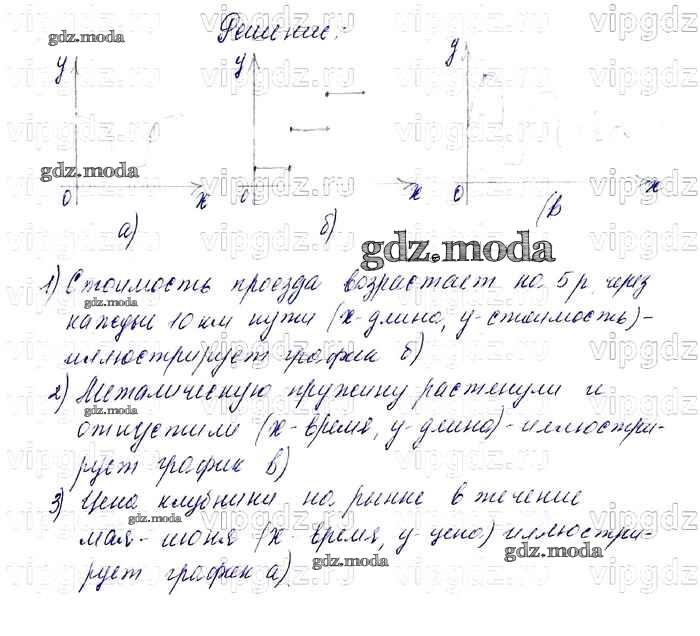 Решение:
y y y
0 x 0 x 0 x
а) б) (в
gdz.moda
1) Стоимость проезда возрастает на 5 р. через
каждые 10 км пути (x-длина, y-стоимость)-
иллюстрирует график б)
2) Металическую пружину растенули и
отпустили (x-время, y-длина)-иллюстри-
рует график в)
3) Цена клубники на рынке в течение
мая-июня (x-время, y-цена) иллюстри-
рует график а)